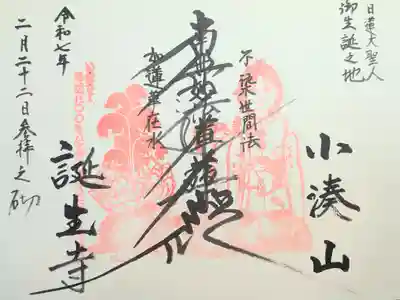 日蓮大聖人
御生誕之地
小湊山
不染世間法
南無妙法蓮華経
如蓮華在水
誕生寺
令和七年
二月二十二日参拝之砌